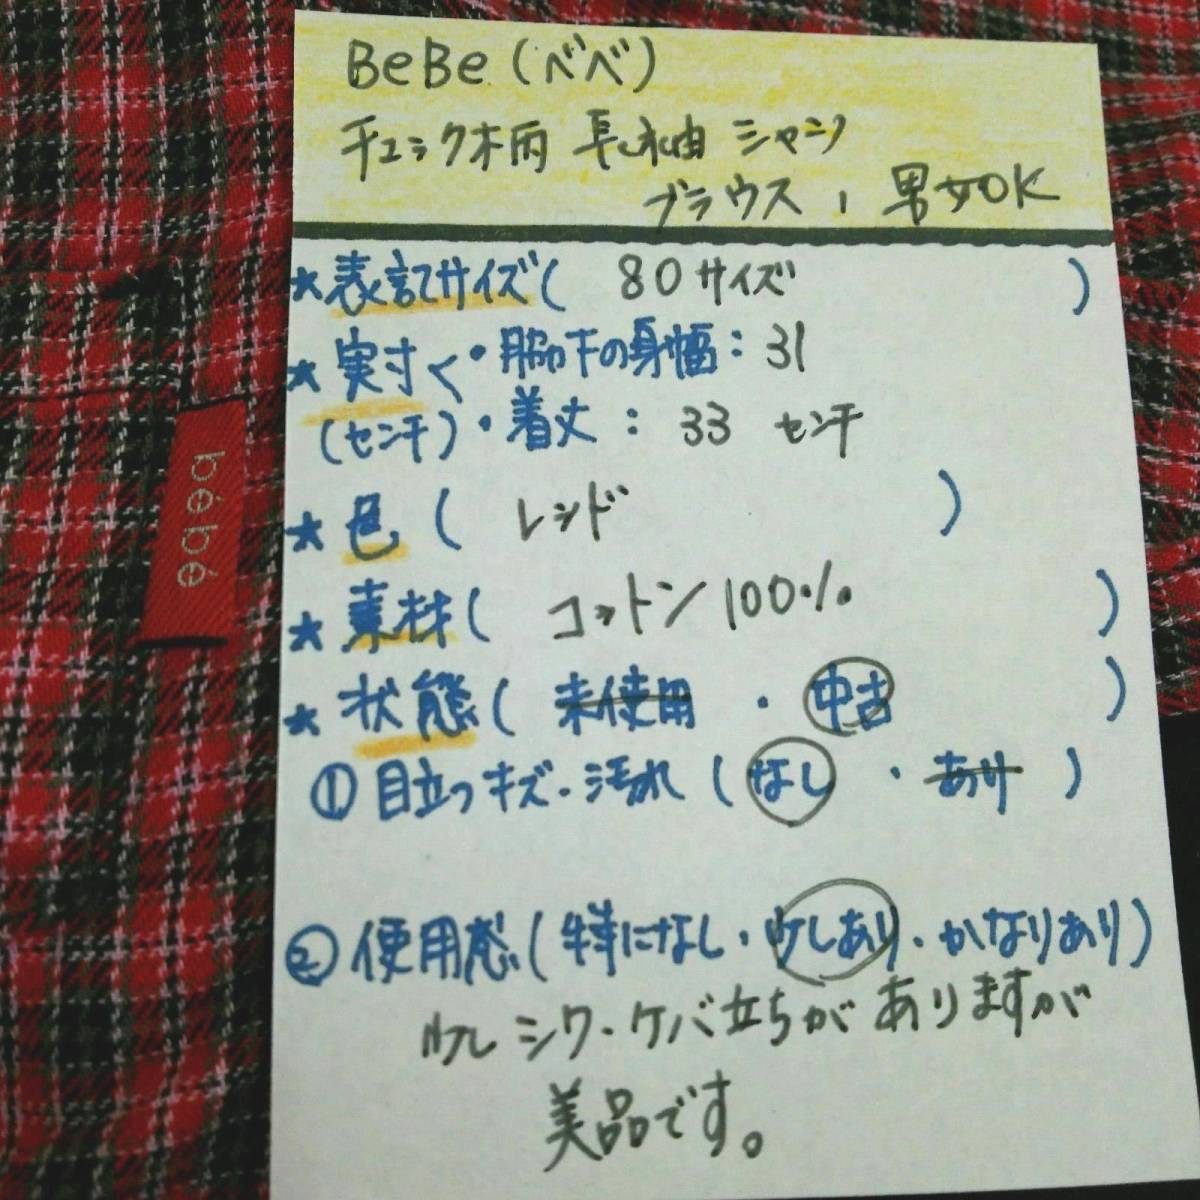 BeBe (べべ)
チェック柄 長袖 シャツ
ブラウス , 男女OK
★表記サイズ( 80サイズ )
★実寸く・脇下の身幅:31
(センチ)・着丈:33 センチ
★色( レッド )
★素材( コットン100% )
★状態( 未使用 ・ 中古 )
①目立つキズ・汚れ(なし ・ あり )
②使用感(特になし・少しあり・かなりあり)
少し シワ・ケバ立ちがありますが
美品です。
bébé